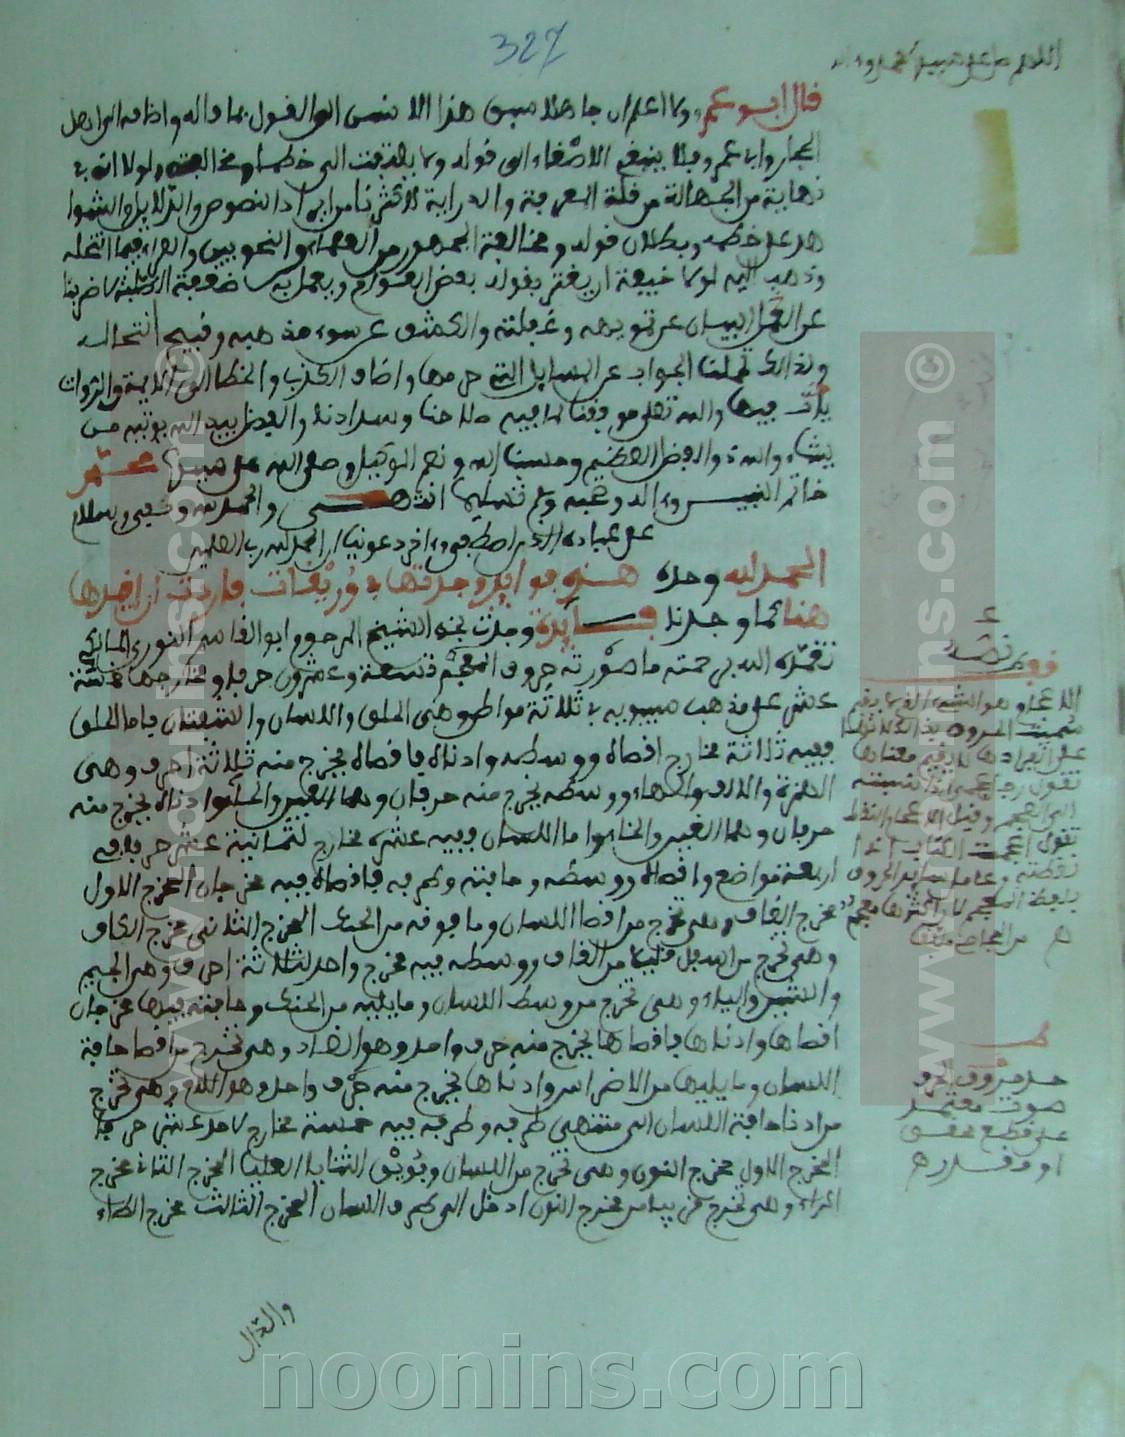 327
اللهم صل على سيدنا محمد وءاله
قال ابو عمرو ولا اعلم ان جاهلا سبق هذا الانسى الى القول بما قاله واضافه الى اهل
الحجاز وابا عمرو فلا ينبغى الاصغاء الى قوله ولا يلتفت الى خطئه ومخالفته ولولا انه فى
نهاية من الجهالة من قلة المعرفة والدراية لاكثرنا من ايراد النصوص والدلايل والشوا
هد على خطئه وبطلان قوله ومخالفة الجمهور من العلماء والنحويين والقراء فيما انتحله
وذهب اليه لولا خيفة ان يغتر بقوله بعض العوام ويعمل به ضعفة الطلبة لاضربنا
عن البيان عن تمويهه وغفلته والكشف عن سوء مذهبه وقبيح انتحاله
ولذلك تحملنا الجواب عن المسايل التى حرفها واضاف الكذب والخطا الى الايمة والروات
فيها والله تعلى موفقنا لما فيه صلاحنا وسدادنا والفضل بيد الله يوتيه من
يشاء والله ذو الفضل العظيم وحسبنا الله ونعم الوكيل وصلى الله على سيدنا محمد
خاتم النبيين وءاله وصحبه وسلم تسليما انتهى والحمد لله وكفى وسلام
على عباده الذين اصطفى وءاخر دعوينا ان الحمد لله رب العلمين
الحمد لله وحده هذه فوايد وجدتها فى وريقات فاردت ان اقيدها
هنا كما وجدتا فايدة وجدت بخط الشيخ المرحوم ابو القاسم النورى المالكى
تغمده الله برحمته ما صورته حروف المعجم تسعة وعشرون حرفا ومخارجها ستة
عشر على مذهب سيبويه فى ثلاثة مواطن وهى الحلق واللسان والشفتان فاما الحلق
ففيه ثلاثة مخارج اقصاه ووسطه وادناه فاقصاه يخرج منه ثلاثة احرف وهى
الهمزة والالف والهاء ووسطه يخرج منه حرفان وهما العين والحاء وادناه يخرج منه
حرفان وهما الغين والخاء واما اللسان ففيه عشرة مخارج لثمانية عشر حرفا فى
اربعة مواضع واقصاه ووسطه وحافته وطرفه فاقصاه فيه مخرجان المخرج الاول
مخرج القاف وهى تخرج من اقصا اللسان وما فوقه من الحنك المخرج الثانى مخرج الكاف
وهى تخرج من اسفل قليلا من القاف ووسطه فيه مخرج واحد لثلاثة احرف وهى الجيم
والشين والياء وهى تخرج من وسط اللسان وما يليه من الحنك وحافته فيها مخرجان
اقصاها وادناها فاقصاها يخرج منه حرف واحد وهو الضاد وهى تخرج من اقصا حافة
اللسان وما يليها من الاضراس وادناها يخرج منه حرف واحد وهو اللام وهى تخرج
من ادنا حافة اللسان الى منتهى طرفه وطرفه فيه خمسة مخارج لاحد عشر حرفا
المخرج الاول مخرج النون وهى تخرج من اللسان وفويق الثنايا العليا المخرج الثانى مخرج
الراء وهى تخرج قريبا من مخرج النون ادخل الى طرف اللسان المخرج الثالث مخرج الطاء
والدال
سميت الحروف بذلك لانها
على انفرادها لا يفهم معناها
تقول رجل اعجمى اذا نسبته
الى العجم وقيل الاعجام النقط
تقول اعجمت الكتاب اذا
نقطته
حد حروف
صوت معتمد
على مقطع محقق
او مقدر
www.noonins.com ©
www.noonins.com ©
noonins.com